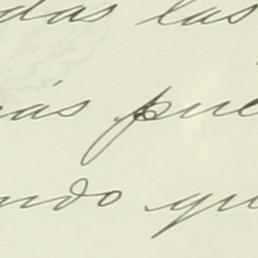 das las
ás pue
ndo qu